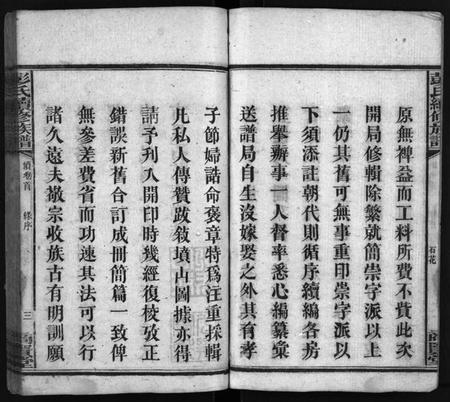 原無裨益而工料所費不貲此次
開局修輯除繁就簡崇字派以上
一仍其舊可無事重印崇字派以
下須添註朝代則循序續編各房
推舉辦事一人督率悉心編纂彙
送譜局自生沒嫁娶之外其有孝
子節婦誥命褒章特爲注重採輯
凡私人傳贊跋敘墳山圖據亦得
請予刋入開印時幾經復棱攷正
錯誤新舊合訂成冊簡篇一致俾
無參差費省而功速其法可以行
諸久遠夫敬宗收族古有明訓願
彭氏續修族譜
續卷首
後序
三
石花